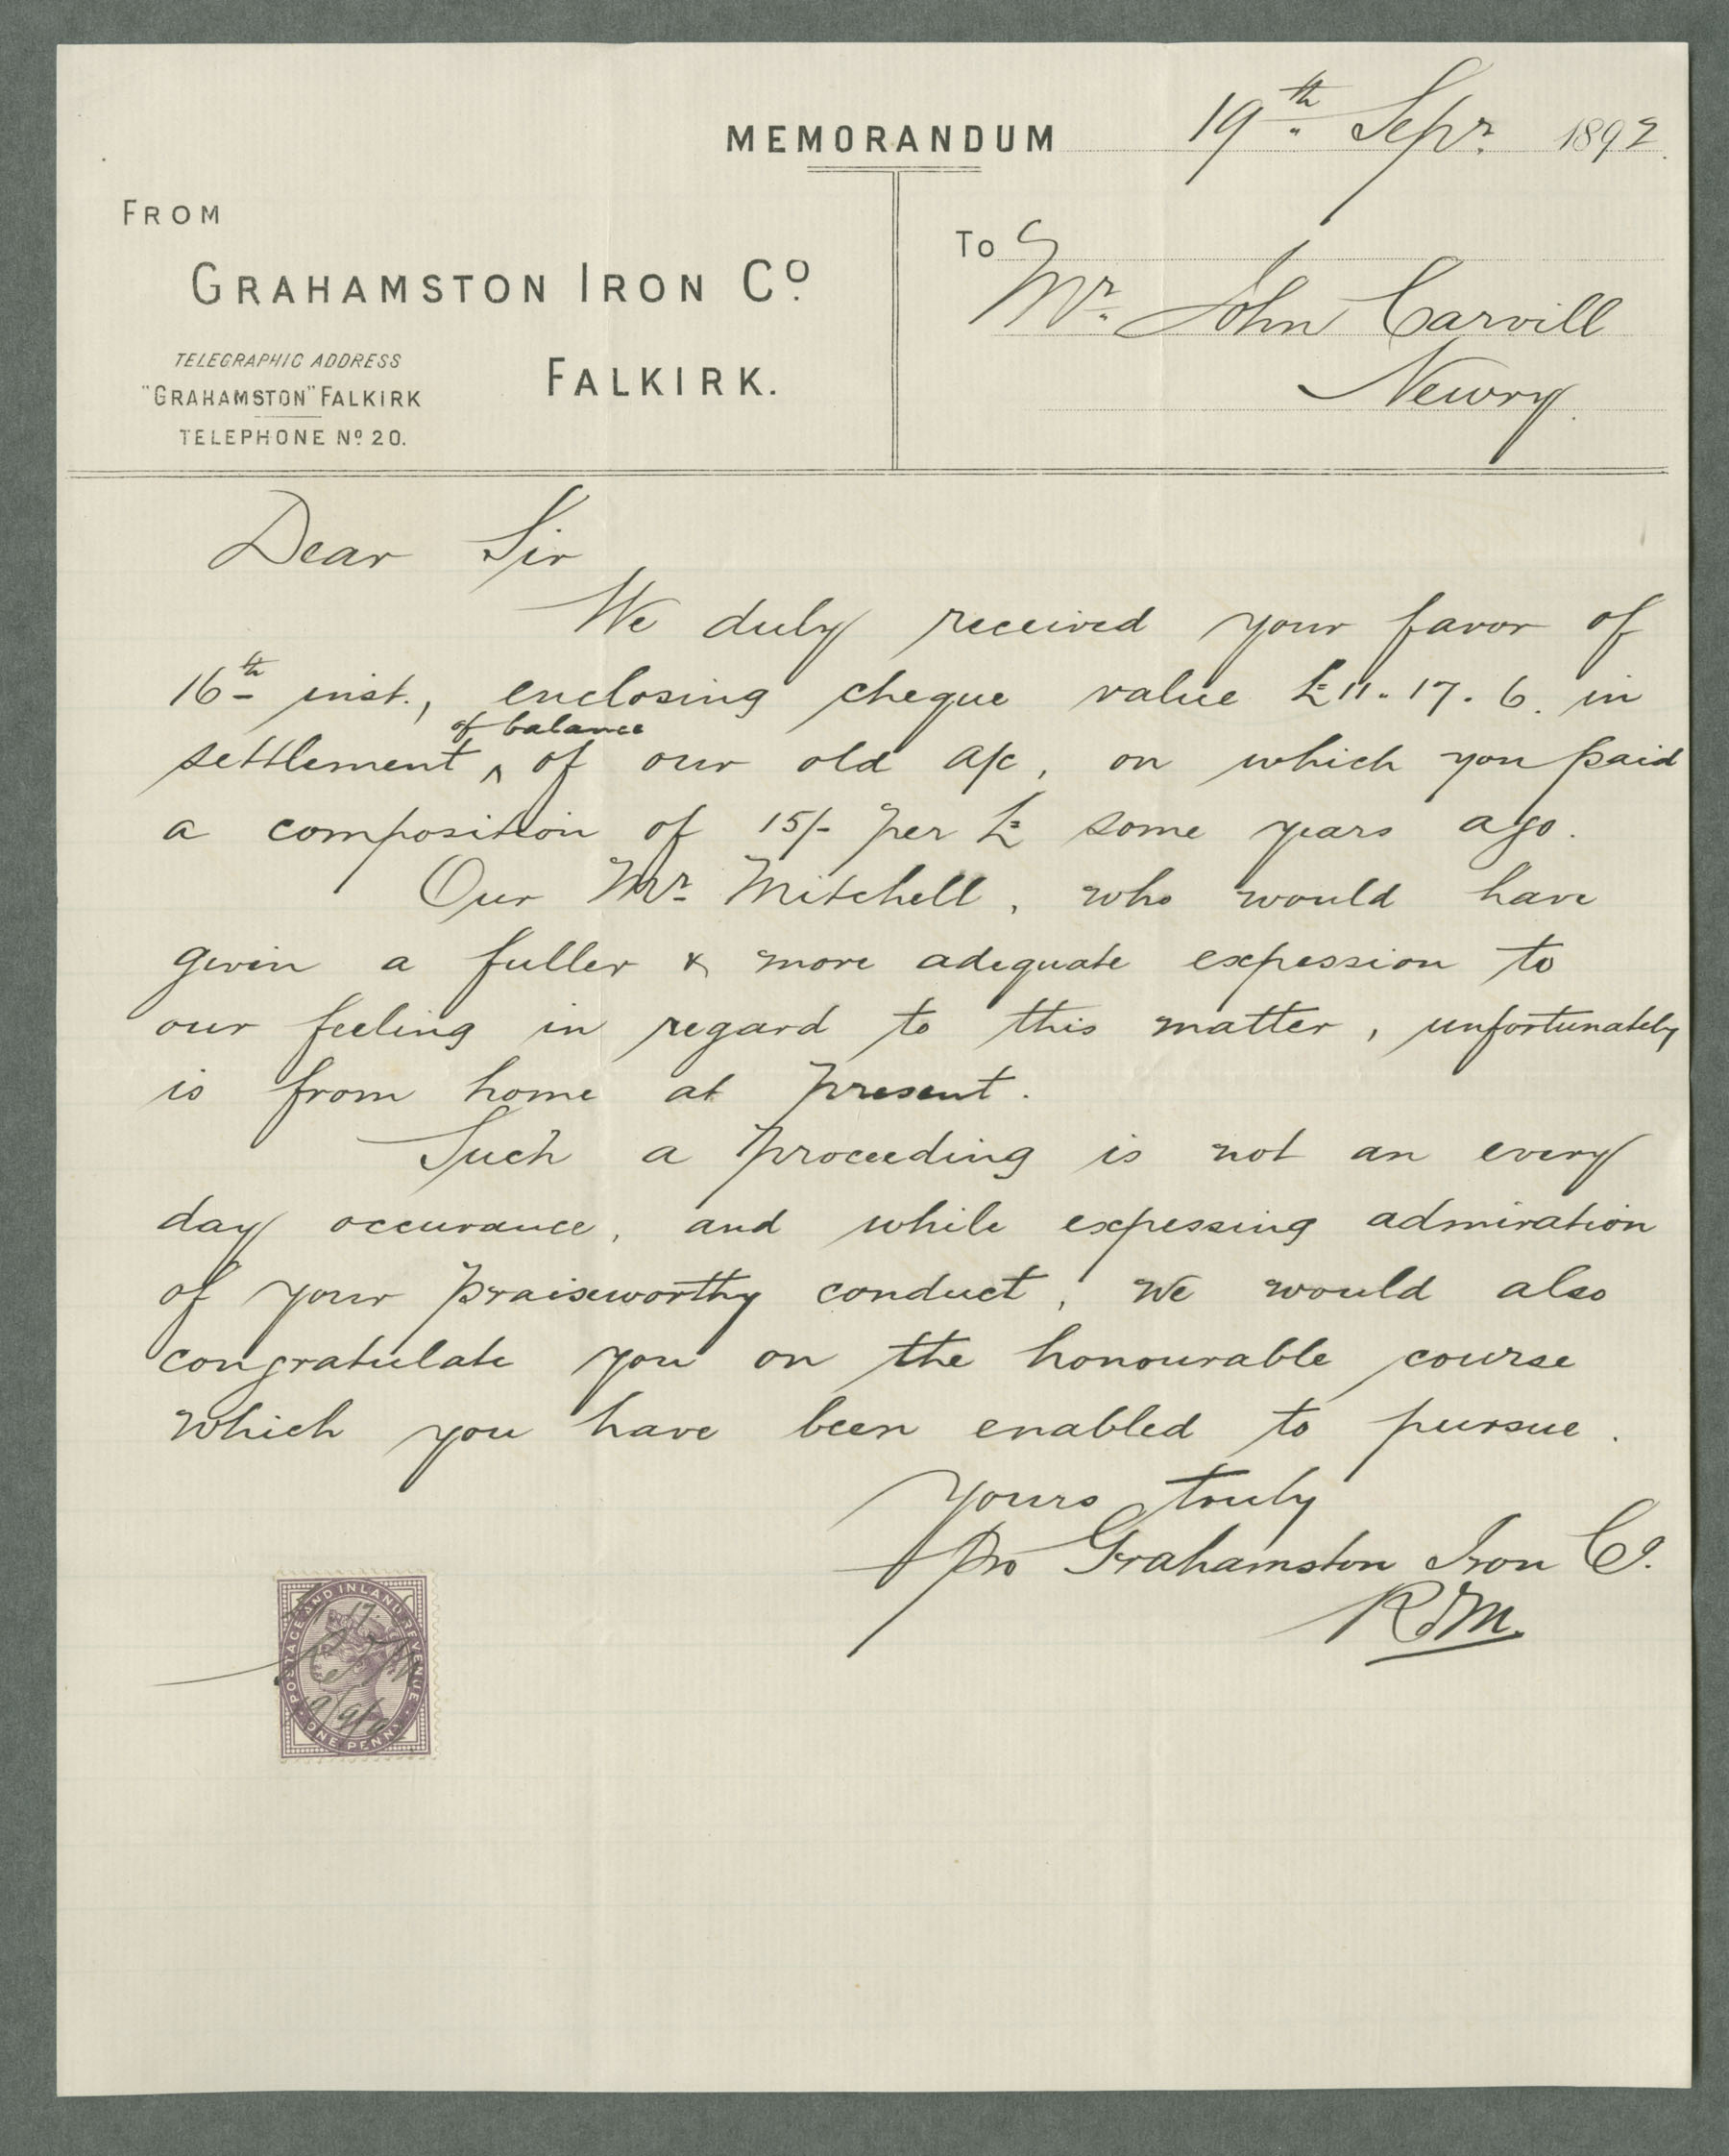 MEMORANDUM 19th. Sepr. 1892.
FROM
GRAHAMSTON IRON Co.
TELEGRAPHIC ADDRESS
"GRAHAMSTON" FALKIRK
TELEPHONE No 20.
FALKIRK.
To
Mr. John Carvill
Newry.
Dear Sir
We duly received your favor of
16th inst., enclosing cheque value £11.17.6. in
of balance
settlement ^ of our old a/c, on which you paid
a composition of 15/- per £ some years ago.
Our Mr. Mitchell, who would have
given a fuller & more adequate expession to
our feeling in regard to this matter, unfortunately
is from home at present.
Such a proceeding is not an every
day occurance, and while expessing admiration
of your praiseworthy conduct, we would also
congratulate you on the honourable course
which you have been enabled to pursue.
Yours truly
pro Grahamston Iron Co.
POSTAGE AND INLAND REVENUE
ONE PENNY